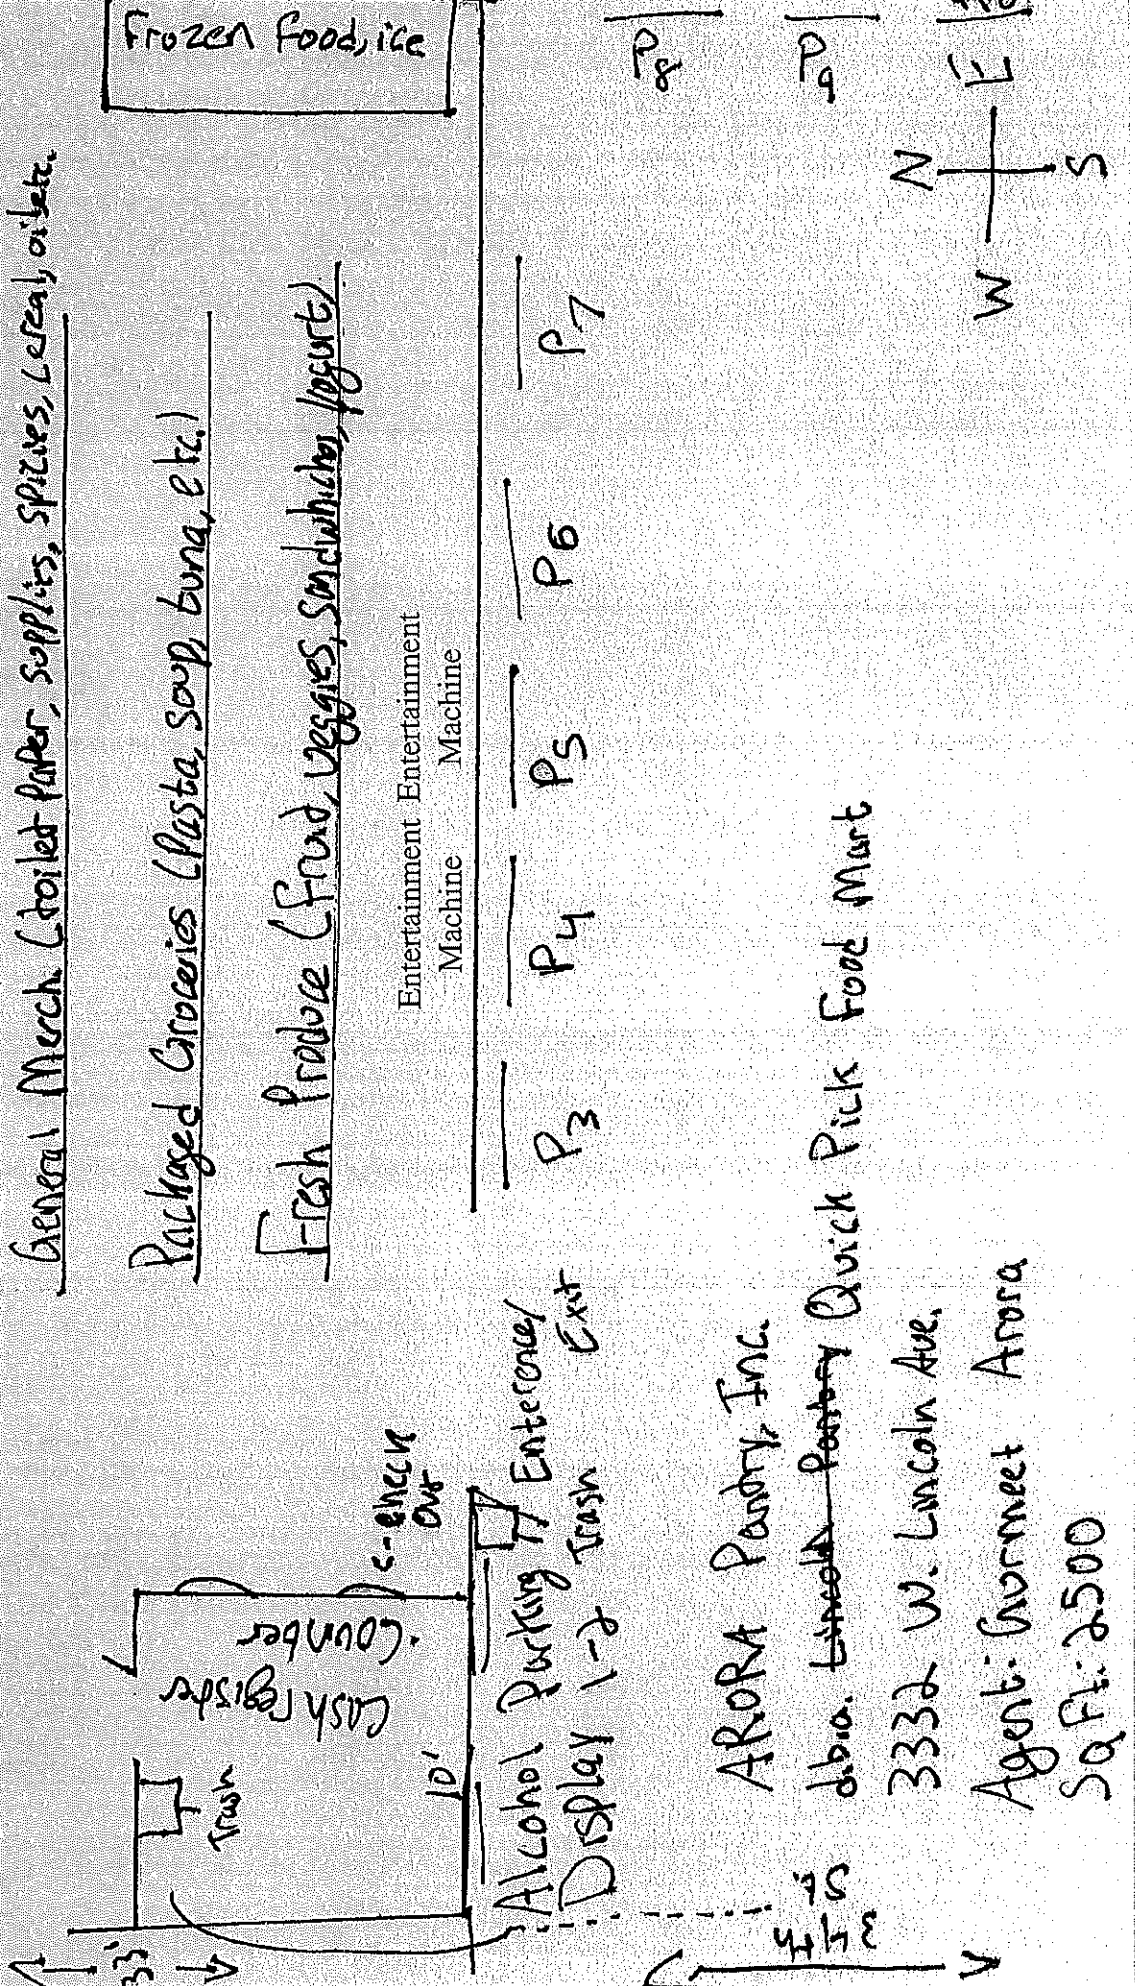 Frozen Food, ice
General Merch. (toilet Paper, supplies, spices, cereal, oil etc.
Packaged Groceries (Pasta, Soup, tuna, etc.)
Fresh Produce (Fruid, veggies, sandwhiches, Yogurt)
Entertainment Machine
Entertainment Machine
P3
P4
P5
P6
P7
P8
P9
Cash register
Counter
Trash
<- Check Out
10'
33'
Alcohol Display
Parking 1-2
Trash
Enterence/ Exit
N
W
E
S
ARORA Pantry, Inc.
dba. Lincoln Pantry Quick Pick Food Mart
3332 W. Lincoln Ave.
Agent: Gurmeet Arora
SqFt: 2500